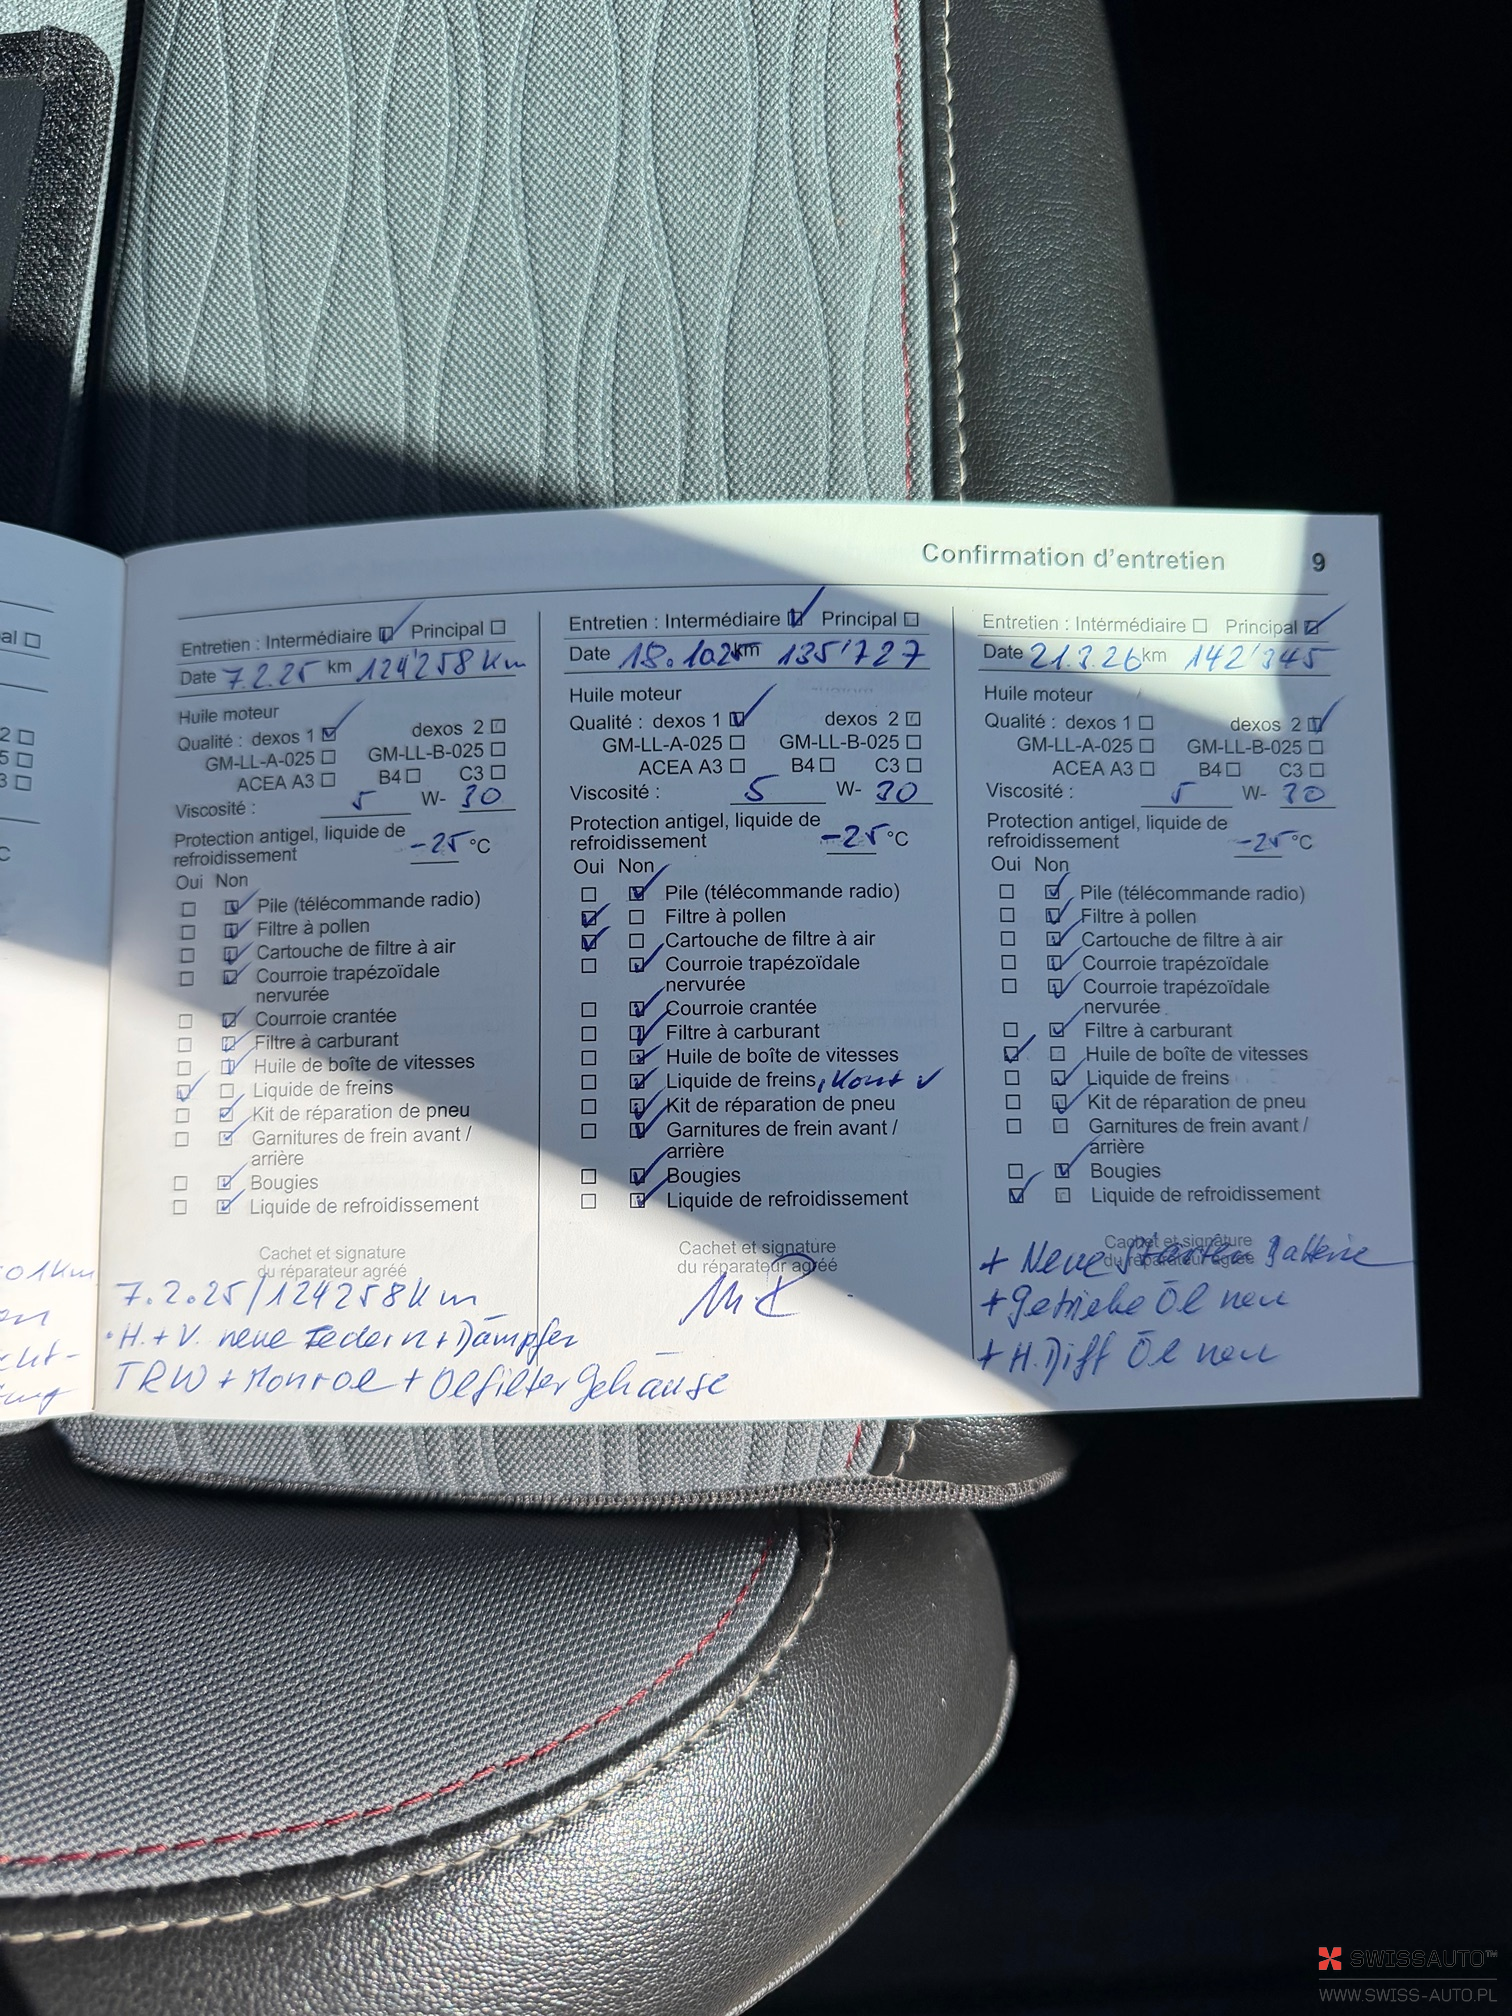 Confirmation d'entretien 9
al
2
5
3
C
01Km
en
Entretien : Intermédiaire Principal
Date 7.2.25 km 124'258 Km
Huile moteur
Qualité : dexos 1 dexos 2
GM-LL-A-025 GM-LL-B-025
ACEA A3 B4 C3
Viscosité : 5 W- 30
Protection antigel, liquide de
refroidissement -25 °C
Oui Non
Pile (télécommande radio)
Filtre à pollen
Cartouche de filtre à air
Courroie trapézoïdale
nervurée
Courroie crantée
Filtre à carburant
Huile de boîte de vitesses
Liquide de freins
Kit de réparation de pneu
Garnitures de frein avant /
arrière
Bougies
Liquide de refroidissement
Cachet et signature
du réparateur agréé
7.2.25/124258Km
H.+V. neue Federn + Dämpfer
TRW + Monroe + Ölfilter Gehäuse
Entretien : Intermédiaire Principal
Date 18.10.25 km 135'727
Huile moteur
Qualité : dexos 1 dexos 2
GM-LL-A-025 GM-LL-B-025
ACEA A3 B4 C3
Viscosité : 5 W- 30
Protection antigel, liquide de
refroidissement -25 °C
Oui Non
Pile (télécommande radio)
Filtre à pollen
Cartouche de filtre à air
Courroie trapézoïdale
nervurée
Courroie crantée
Filtre à carburant
Huile de boîte de vitesses
Liquide de freins, Kont ✓
Kit de réparation de pneu
Garnitures de frein avant /
arrière
Bougies
Liquide de refroidissement
Cachet et signature
du réparateur agréé
Entretien : Intermédiaire Principal
Date 21.3.26 km 142'345
Huile moteur
Qualité : dexos 1 dexos 2
GM-LL-A-025 GM-LL-B-025
ACEA A3 B4 C3
Viscosité : 5 W- 30
Protection antigel, liquide de
refroidissement -25 °C
Oui Non
Pile (télécommande radio)
Filtre à pollen
Cartouche de filtre à air
Courroie trapézoïdale
Courroie trapézoïdale
nervurée
Filtre à carburant
Huile de boîte de vitesses
Liquide de freins
Kit de réparation de pneu
Garnitures de frein avant /
arrière
Bougies
Liquide de refroidissement
Cachet et signature
du réparateur agréé
+ Neue Starter Batterie
+ Getriebe Öl neu
+ H. Diff Öl neu
SWISSAUTO™
WWW.SWISS-AUTO.PL